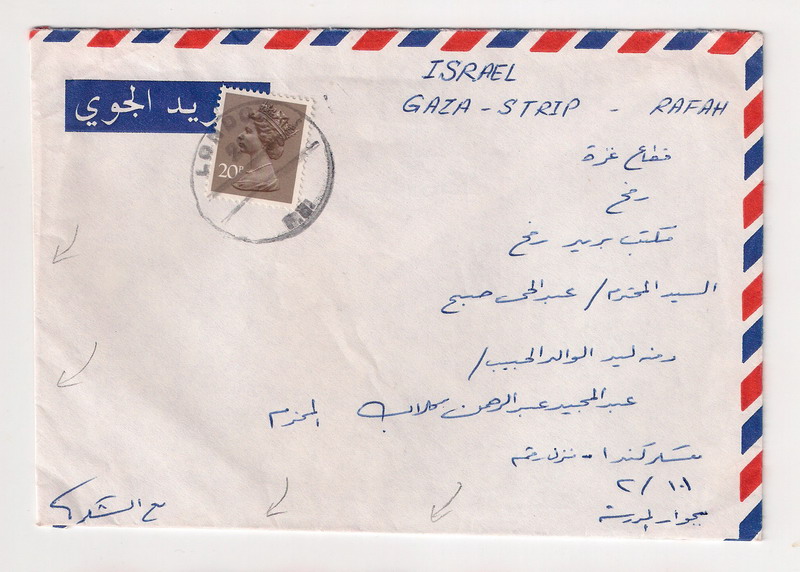 ISRAEL
GAZA - STRIP - RAFAH
بريد الجوي
LONDON
20P
قطاع غزة
رفح
مكتب بريد رفح
السيد المحترم / عبدالحي صبح
ومنه ليد الوالد الحبيب /
عبد المجيد عبد الرحمن كلاب المحترم
معسكر كندا - منزل رقم
١٠١ / ٢
بجوار المدرسة
مع الشكر